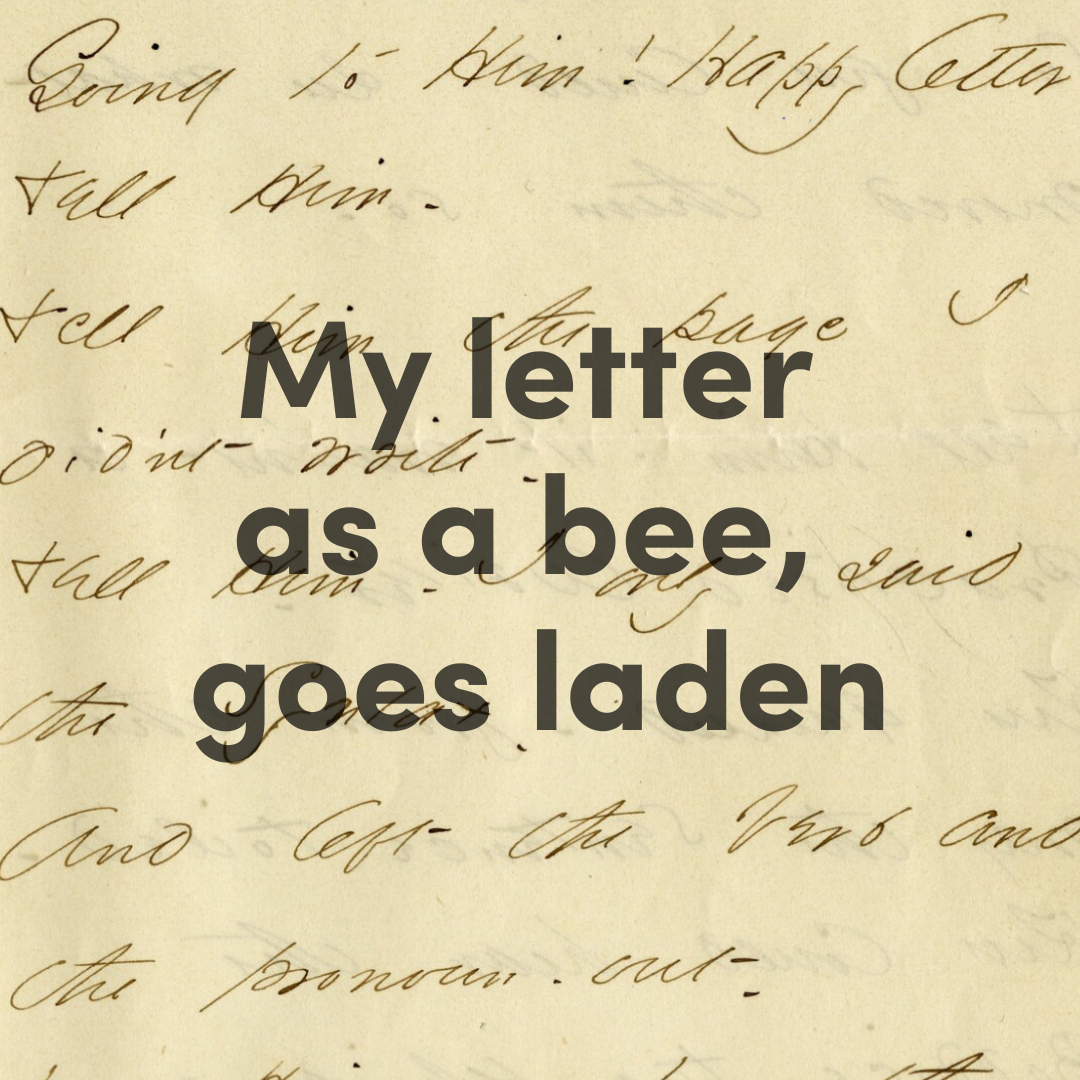 Going to Him! Happy letter
Tell Him -
Tell Him the page I
My letter
didn't write -
as a bee,
Tell Him - I only said
goes laden
the Syntax -
And left the Verb and
the pronoun - out -